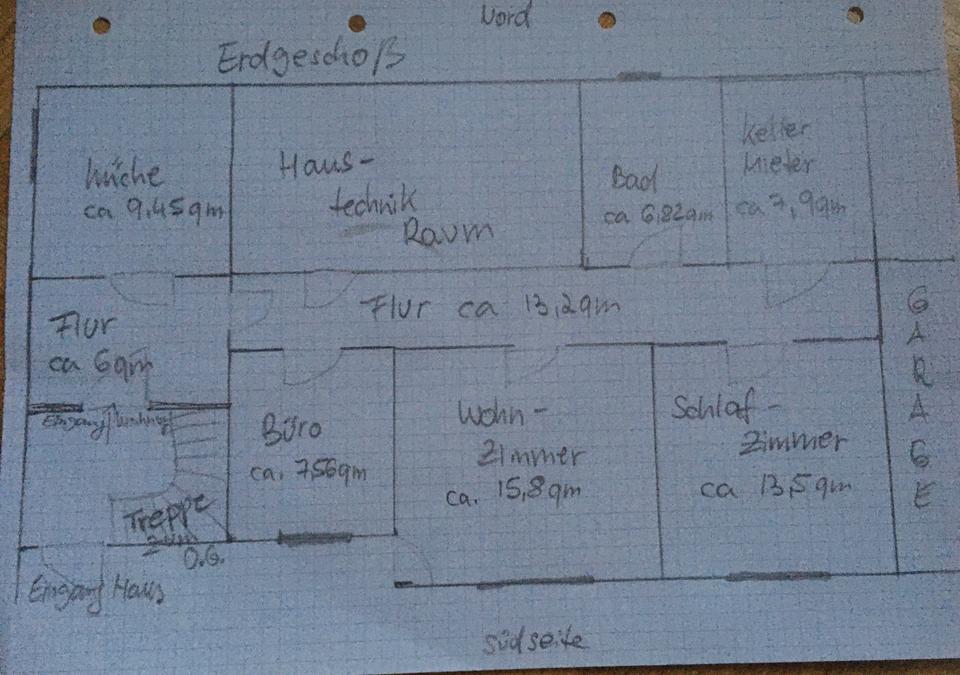 Nord
Erdgeschoß
Küche
ca 9,45qm
Haus-
technik
Raum
Bad
ca 6,82qm
Keller
Mieter
ca 7,9qm
Flur
ca 6qm
Flur ca 13,2qm
Eingang Wohnung
Büro
ca. 7,56qm
Wohn-
Zimmer
ca. 15,8qm
Schlaf-
Zimmer
ca 13,5qm
GARAGE
Treppe
zum
O.G.
Eingang Haus
Südseite